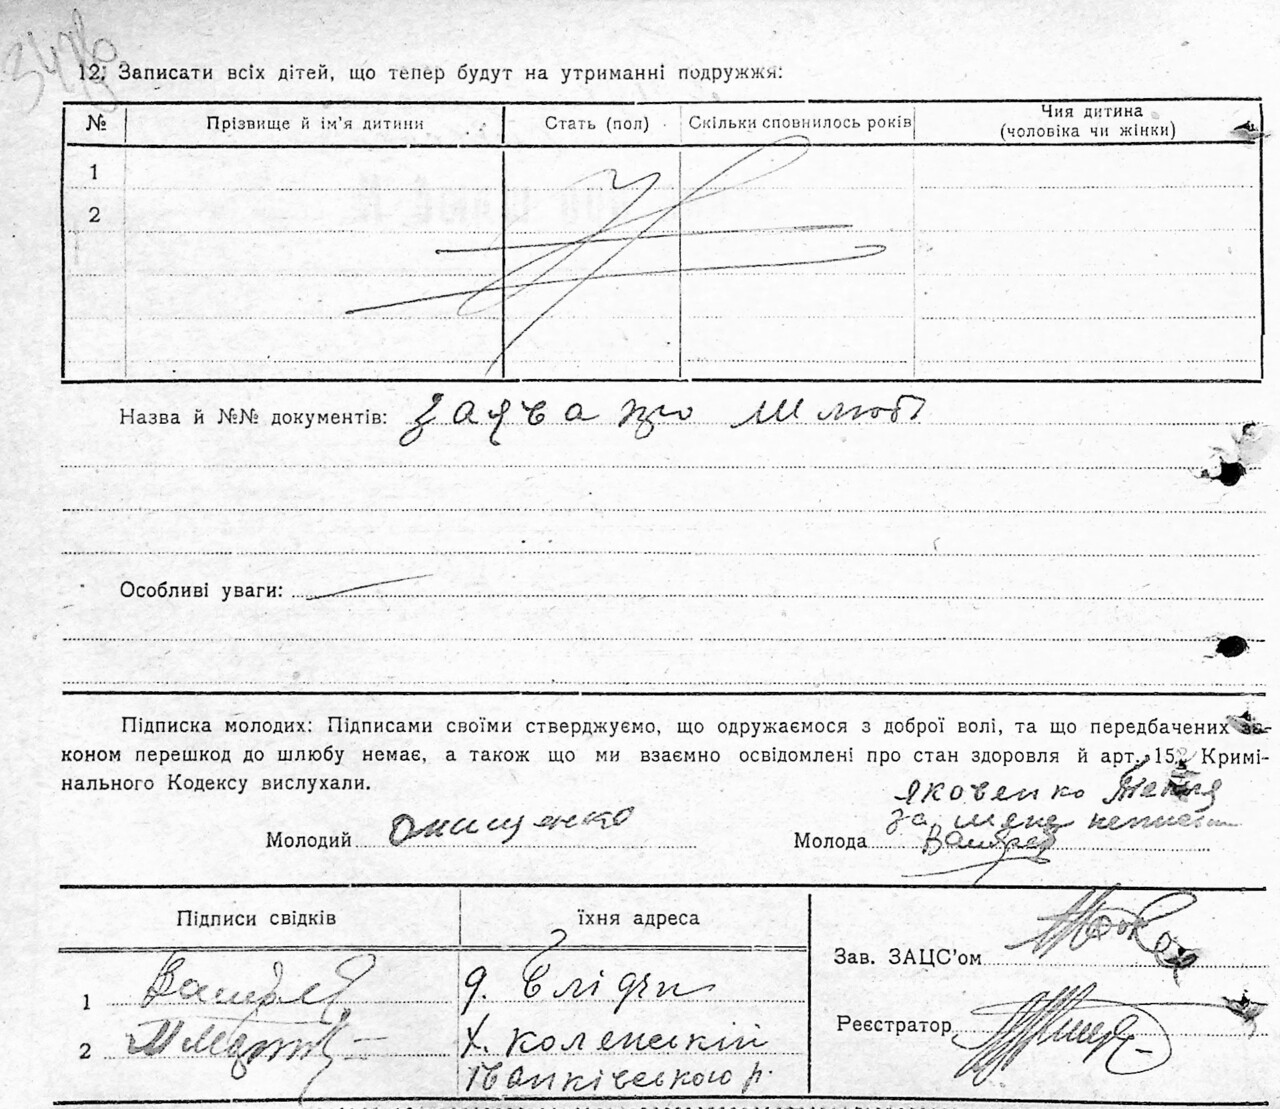 12. Записати всіх дітей, що тепер будут на утриманні подружжя:
№ Прізвище й ім'я дитини Стать (пол) Скільки сповнилось років Чия дитина (чоловіка чи жінки)
1
2
Назва й №№ документів: заява про шлюб
Особливі уваги:
Підписка молодих: Підписами своїми стверджуємо, що одружаємося з доброї волі, та що передбачених за-
коном перешкод до шлюбу немає, а також що ми взаємно освідомлені про стан здоровля й арт. 152 Кримі-
нального Кодексу вислухали.
Яковенко
за мене
Молодий Онищенко Молода
Підписи свідків їхня адреса
Зав. ЗАЦС'ом
1 д.
Реєстратор
2 х.
Іванківського р.